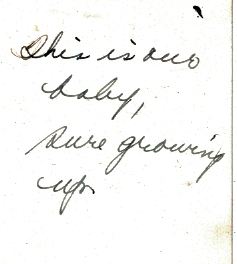 This is our
baby,
sure growing
up